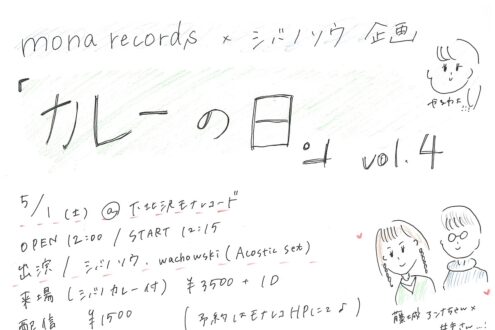 mona records × シバノソウ 企画
「カレーの日」 vol.4
5/1 (土) @ 下北沢モナレコード
OPEN 12:00 / START 12:15
出演 / シバノソウ. wachowski (Acostic set)
来場 (シバノカレー付) ¥3500 + 1D
配信 ¥1500 (予約はモナレコHPにて♪)